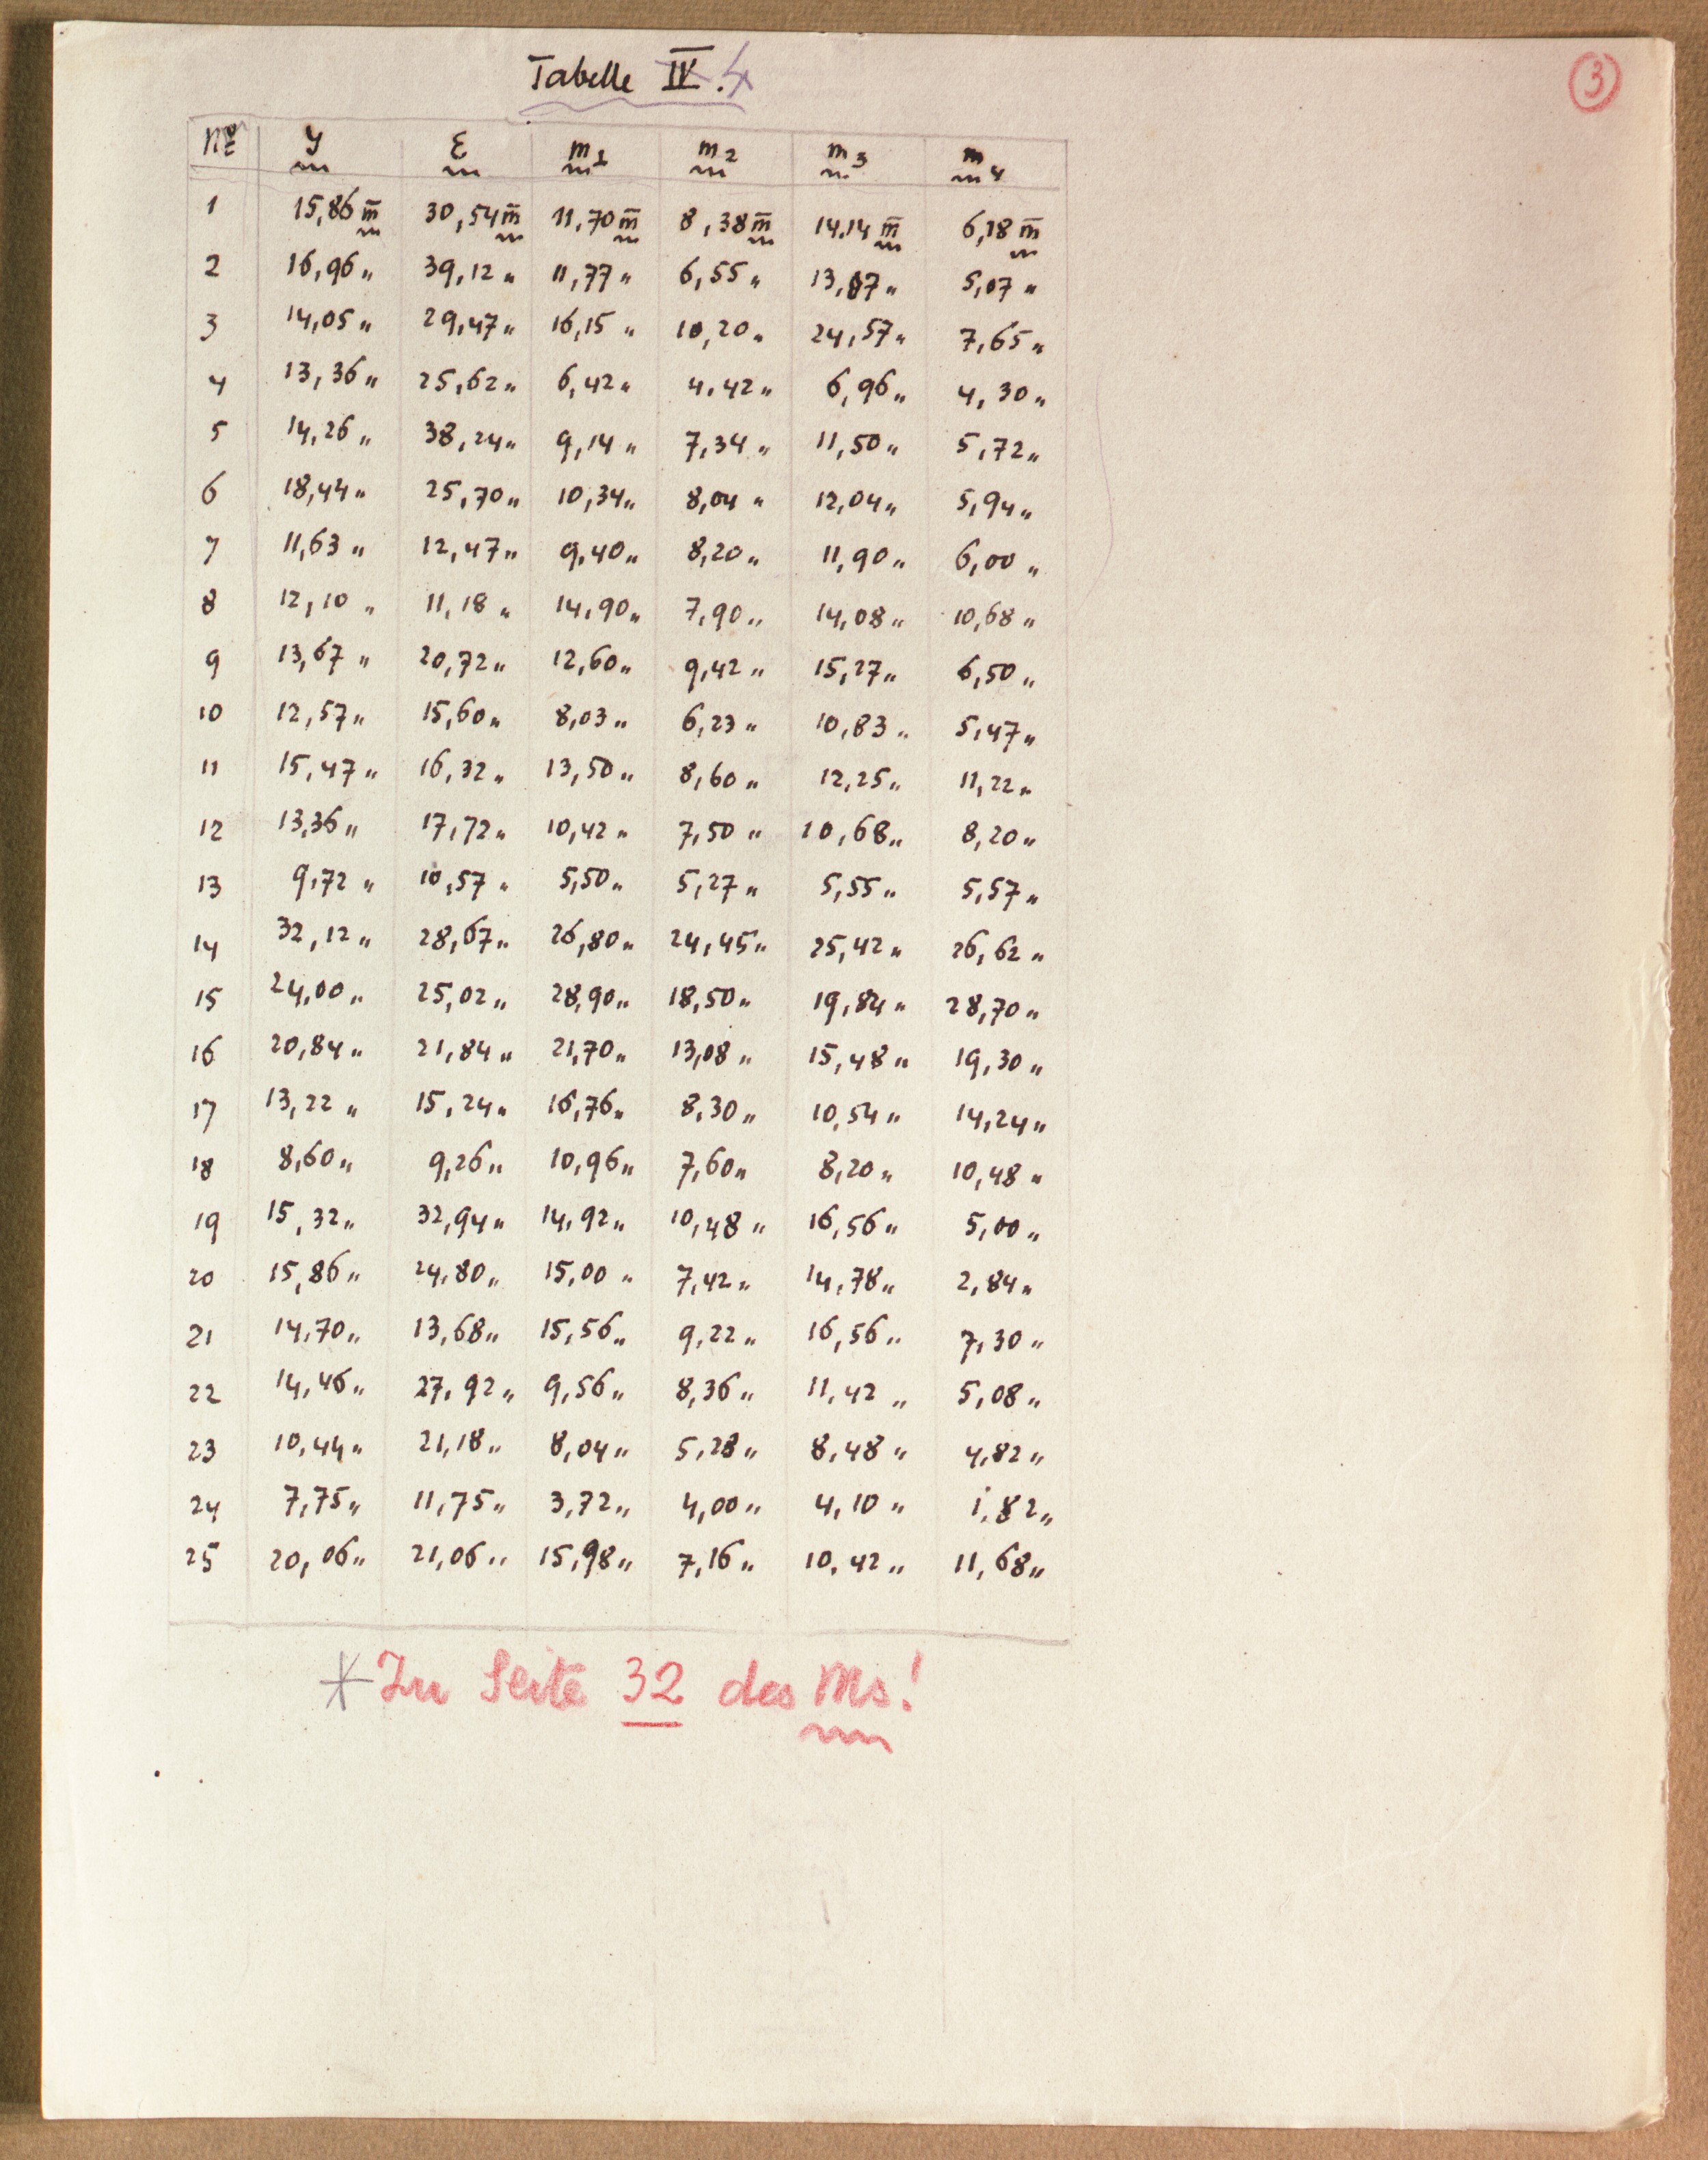 3
Tabelle IV. 4
No y ε m1 m2 m3 m4
1 15,86 m 30,54 m 11,70 m 8,38 m 14,14 m 6,18 m
2 16,96 „ 39,12 „ 11,77 „ 6,55 „ 13,07 „ 5,07 „
3 14,05 „ 29,47 „ 16,15 „ 10,20 „ 24,57 „ 7,65 „
4 13,36 „ 25,62 „ 6,42 „ 4,42 „ 6,96 „ 4,30 „
5 14,26 „ 38,24 „ 9,14 „ 7,34 „ 11,50 „ 5,72 „
6 18,44 „ 25,70 „ 10,34 „ 8,04 „ 12,04 „ 5,94 „
7 11,63 „ 12,47 „ 9,40 „ 8,20 „ 11,90 „ 6,00 „
8 12,10 „ 11,18 „ 14,90 „ 7,90 „ 14,08 „ 10,68 „
9 13,67 „ 20,72 „ 12,60 „ 9,42 „ 15,27 „ 6,50 „
10 12,57 „ 15,60 „ 8,03 „ 6,23 „ 10,83 „ 5,47 „
11 15,47 „ 16,32 „ 13,50 „ 8,60 „ 12,25 „ 11,22 „
12 13,36 „ 17,72 „ 10,42 „ 7,50 „ 10,68 „ 8,20 „
13 9,72 „ 10,57 „ 5,50 „ 5,27 „ 5,55 „ 5,57 „
14 32,12 „ 28,67 „ 26,80 „ 24,45 „ 25,42 „ 26,62 „
15 24,00 „ 25,02 „ 28,90 „ 18,50 „ 19,84 „ 28,70 „
16 20,84 „ 21,84 „ 21,70 „ 13,08 „ 15,48 „ 19,30 „
17 13,22 „ 15,24 „ 16,76 „ 8,30 „ 10,54 „ 14,24 „
18 8,60 „ 9,26 „ 10,96 „ 7,60 „ 8,20 „ 10,48 „
19 15,32 „ 32,94 „ 14,92 „ 10,48 „ 16,56 „ 5,00 „
20 15,86 „ 24,80 „ 15,00 „ 7,42 „ 14,78 „ 2,84 „
21 14,70 „ 13,68 „ 15,56 „ 9,22 „ 16,56 „ 7,30 „
22 14,46 „ 27,92 „ 9,56 „ 8,36 „ 11,42 „ 5,08 „
23 10,44 „ 21,18 „ 8,04 „ 5,28 „ 8,48 „ 4,82 „
24 7,75 „ 11,75 „ 3,72 „ 4,00 „ 4,10 „ 1,82 „
25 20,06 „ 21,06 „ 15,98 „ 7,16 „ 10,42 „ 11,68 „
* Zu Seite 32 des Ms!